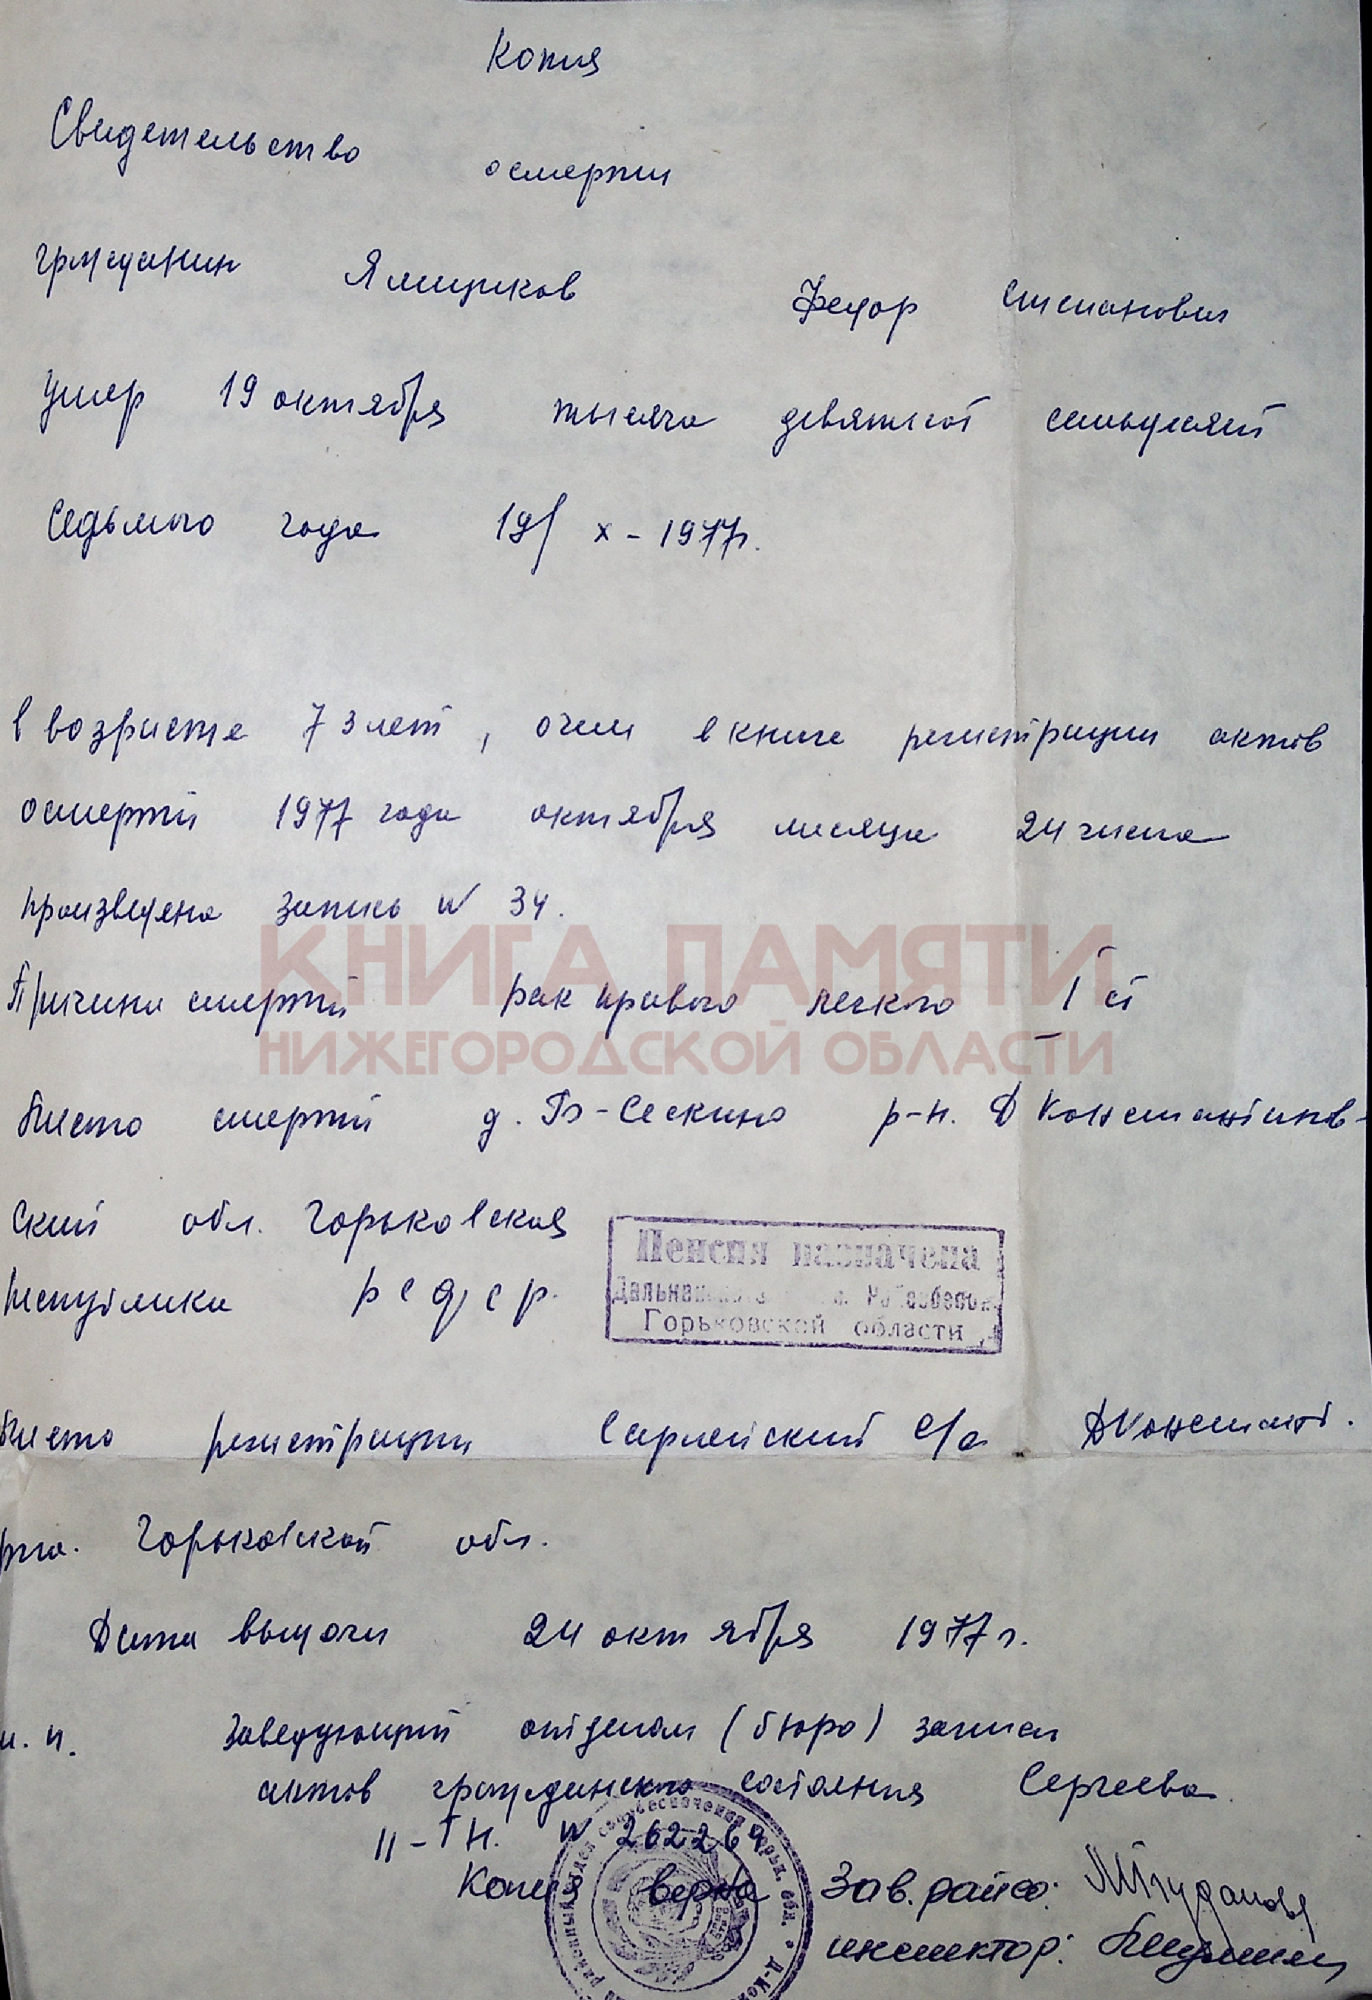 Копия
Свидетельство о смерти
гражданин Ямщиков Федор Степанович
умер 19 октября тысяча девятьсот семьдесят
седьмого года 19/ х - 1977г.
в возрасте 73 лет, о чем в книге регистрации актов
о смерти 1977 года октября месяца 24 числа
произведена запись N 34.
КНИГА ПАМЯТИ
Причина смерти рак правого легкого I ст
НИЖЕГОРОДСКОЙ ОБЛАСТИ
Место смерти д. Б-Сескино р-н. Д Константинов-
ский обл. Горьковская
Республика РСФСР.
Пенсия назначена
Горьковской области
Место регистрации Сарлейский с/с ДКонстант.
р-на. Горьковской обл.
Дата выдачи 24 октября 1977 г.
м. п. Заведующий отделом (бюро) записи
актов гражданского состояния Сергеева
II-ТН. N 262269
Копия верна Зав. райсо:
инспектор: